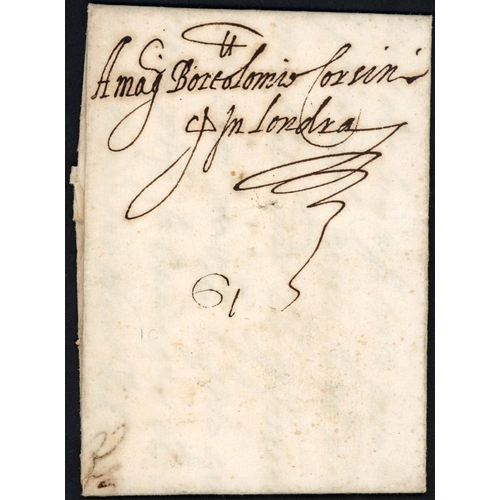 A mag Bortolomio Corsini
In Londra
61